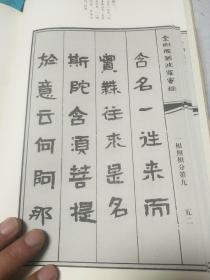 金刚般若波罗蜜经
含名一往来而
實無往来是名
斯陀含須菩提
於意云何阿那
一相無相分第九
五二